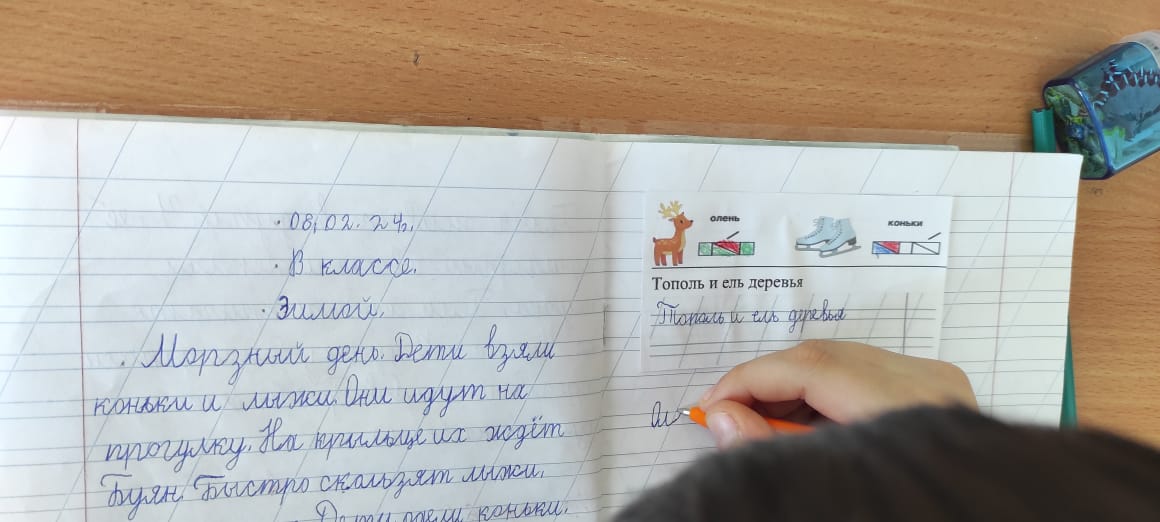 08.02.24г.
В классе.
Зимой.
Морзний день. Дети взяли
коньки и лыжи. Они идут на
прогулку. На крыльце их ждёт
Буян. Быстро скользят лыжи.
Дети коньки.
олень
коньки
Тополь и ель деревья
Тополь и ель деревья